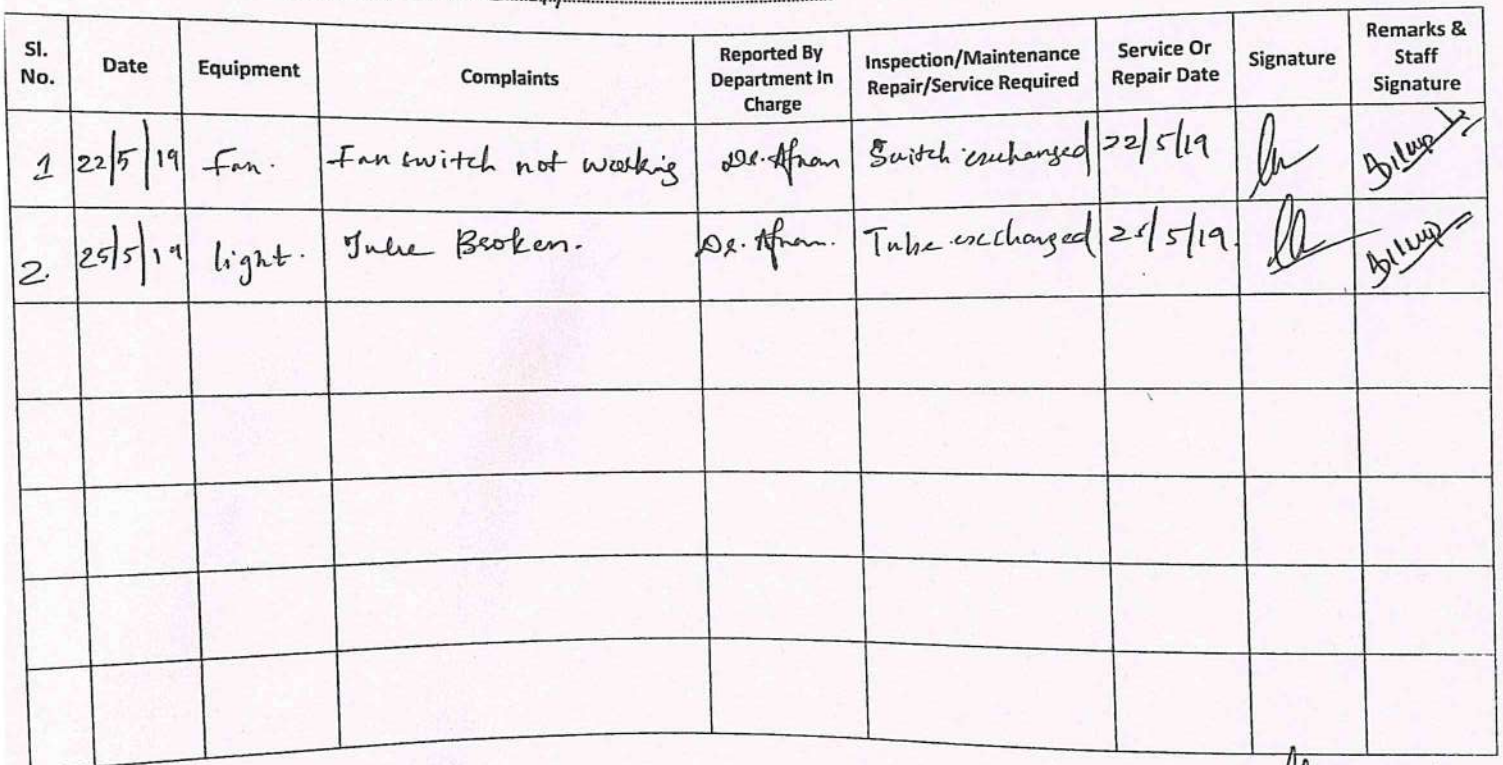 Sl. No. Date Equipment Complaints Reported By Department In Charge Inspection/Maintenance Repair/Service Required Service Or Repair Date Signature Remarks & Staff Signature
1 22/5/19 Fan. Fan switch not working Dr. Afnan Switch exchanged 22/5/19
2. 25/5/19 light. Tube Broken. Dr. Afnan. Tube exchanged 25/5/19.